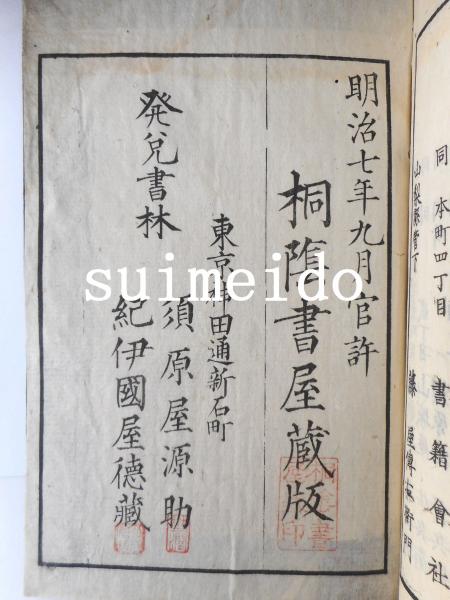 同本町四丁目
書籍會社
山梨縣管下
明治七年九月官許
桐陰書屋蔵版
東京神田通新石町
須原屋源助
発兌書林
紀伊國屋德藏
suimeido